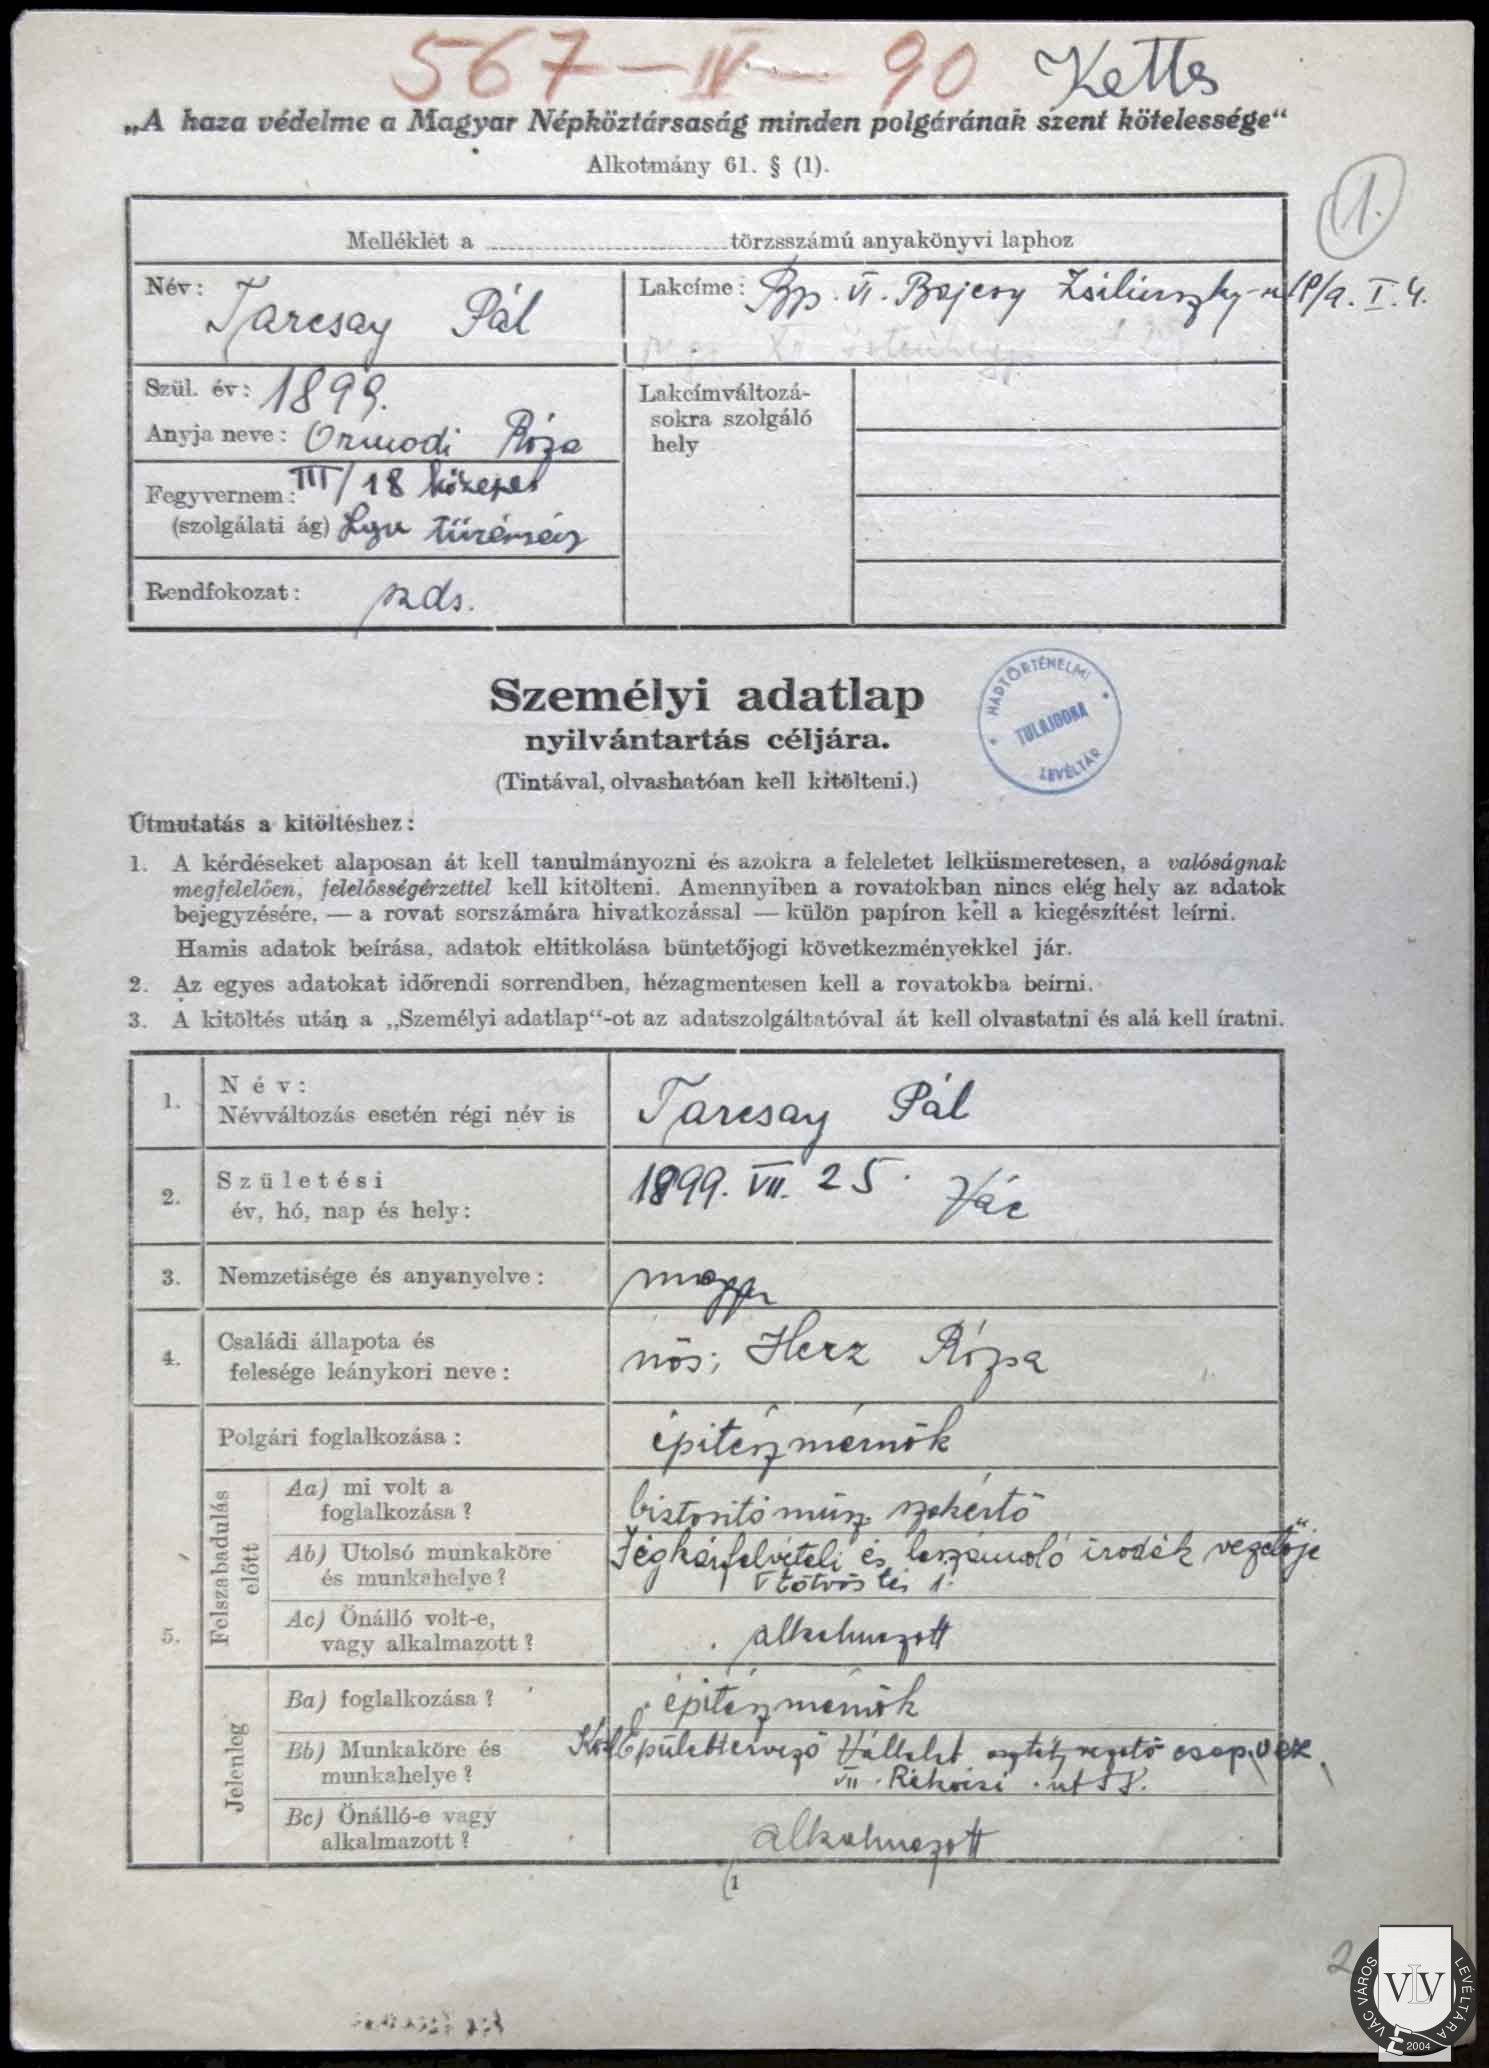 567-IV-90 Kettős
„A haza védelme a Magyar Népköztársaság minden polgárának szent kötelessége“
Alkotmány 61. § (1).
1.
Melléklet a ........ törzsszámú anyakönyvi laphoz
Név: Tarcsay Pál
Lakcíme: Bp. VI. Bajcsy Zsilinszky-u I. 4.
Szül. év: 1899.
Anyja neve: Ormodi Róza
Lakcímváltozá-
sokra szolgáló
hely
Fegyvernem: III/18 közepes
(szolgálati ág) Lgv tüzérség
Rendfokozat: szds.
Személyi adatlap
nyilvántartás céljára.
(Tintával, olvashatóan kell kitölteni.)
HADTÖRTÉNELMI
TULAJDONA
LEVÉLTÁR
Útmutatás a kitöltéshez:
1. A kérdéseket alaposan át kell tanulmányozni és azokra a feleletet lelkiismeretesen, a valóságnak
megfelelően, felelősségérzettel kell kitölteni. Amennyiben a rovatokban nincs elég hely az adatok
bejegyzésére, — a rovat sorszámára hivatkozással — külön papíron kell a kiegészítést leírni.
Hamis adatok beírása, adatok eltitkolása büntetőjogi következményekkel jár.
2. Az egyes adatokat időrendi sorrendben, hézagmentesen kell a rovatokba beírni.
3. A kitöltés után a „Személyi adatlap“-ot az adatszolgáltatóval át kell olvastatni és alá kell íratni.
1. Név:
Névváltozás esetén régi név is
Tarcsay Pál
2. Születési
év, hó, nap és hely:
1899. VII. 25. Vác
3. Nemzetisége és anyanyelve: magyar
4. Családi állapota és
felesége leánykori neve:
nős; Herz Rózsa
5. Polgári foglalkozása: építészmérnök
Felszabadulás
előtt
Aa) mi volt a
foglalkozása?
biztositó műsz. szakértő
Ab) Utolsó munkaköre
és munkahelye?
Jégkárfelvételi és leszámoló irodák vezetője
V Eötvös tér 1.
Ac) Önálló volt-e,
vagy alkalmazott?
alkalmazott
Jelenleg
Ba) foglalkozása? építészmérnök
Bb) Munkaköre és
munkahelye?
Épülettervező Vállalat osztályvezető csop. vez.
VII. Rákóczi út
Bc) Önálló-e vagy
alkalmazott?
alkalmazott
1
2
VÁC VÁROS LEVÉLTÁRA
VLV
2004